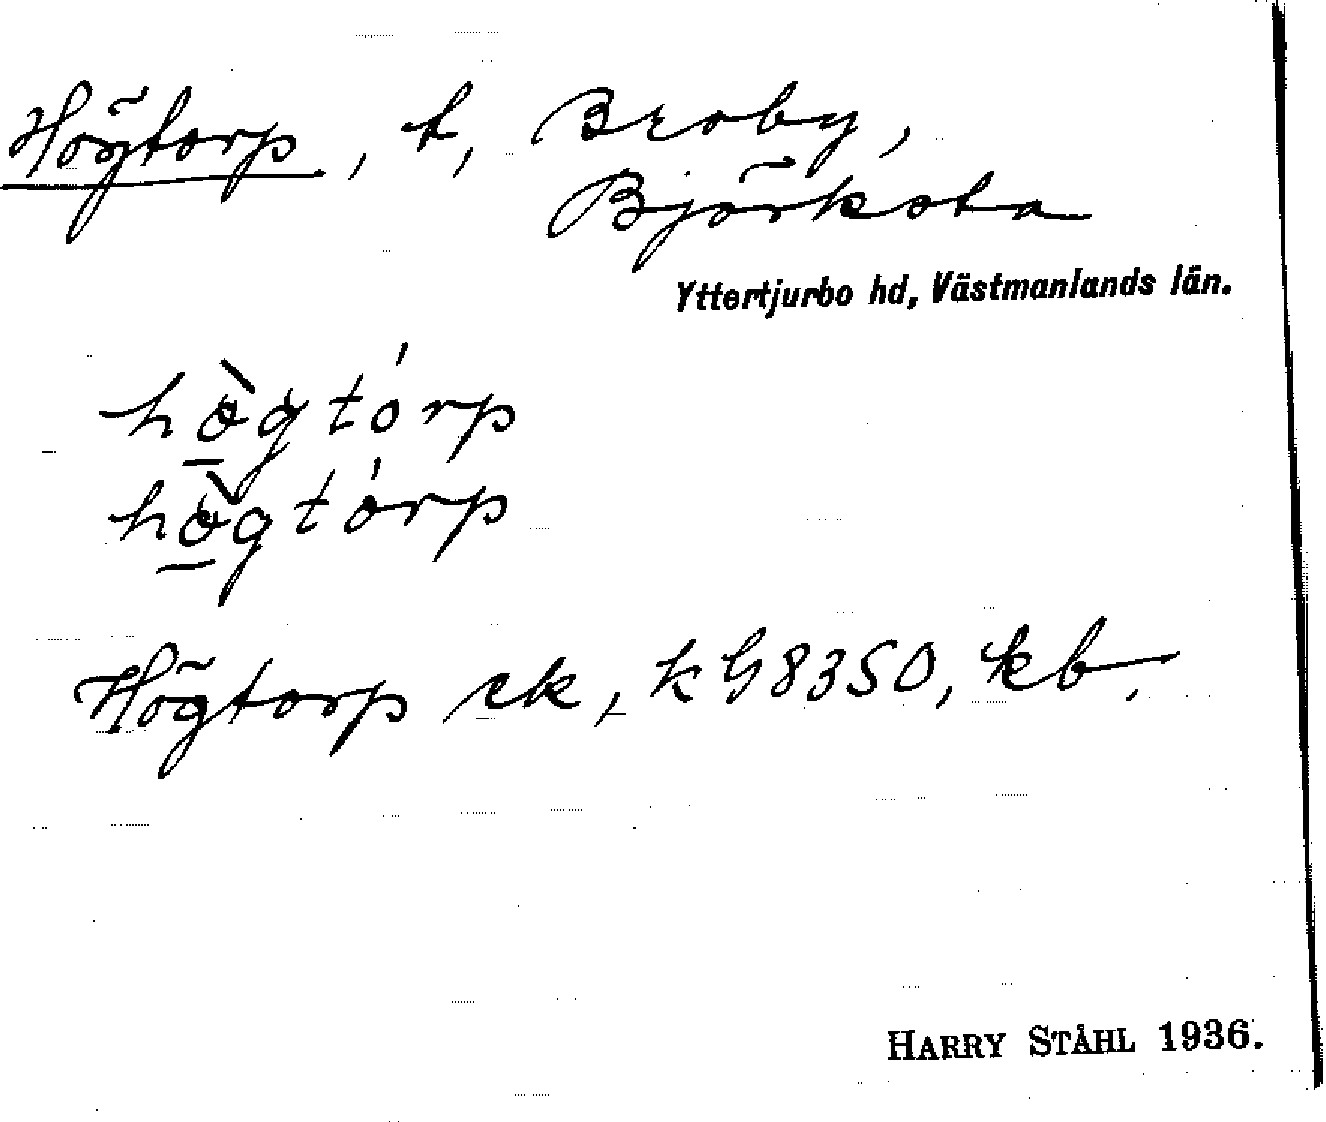 Högtorp, t, Broby,
Björksta
Yttertjurbo hd, Västmanlands län.
hø̀gtórp
hø̀gtórp
Högtorp ek, k G8350, kb.
HARRY STÅHL 1936.